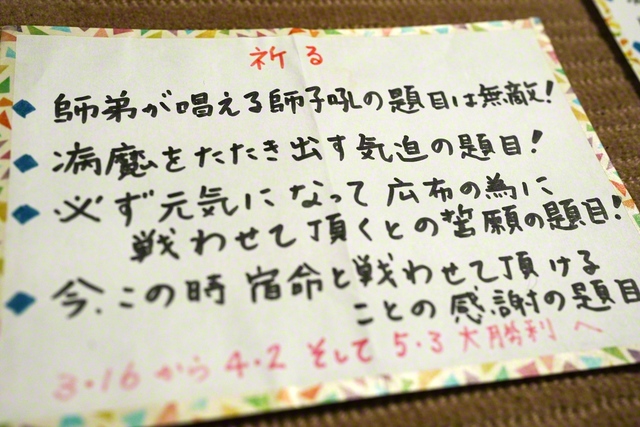 祈る
師弟が唱える師子吼の題目は無敵!
病魔をたたき出す気迫の題目!
必ず元気になって広布の為に
戦わせて頂くとの誓願の題目!
今、この時 宿命と戦わせて頂ける
ことの感謝の題目
3・16から4・2そして5・3大勝利へ